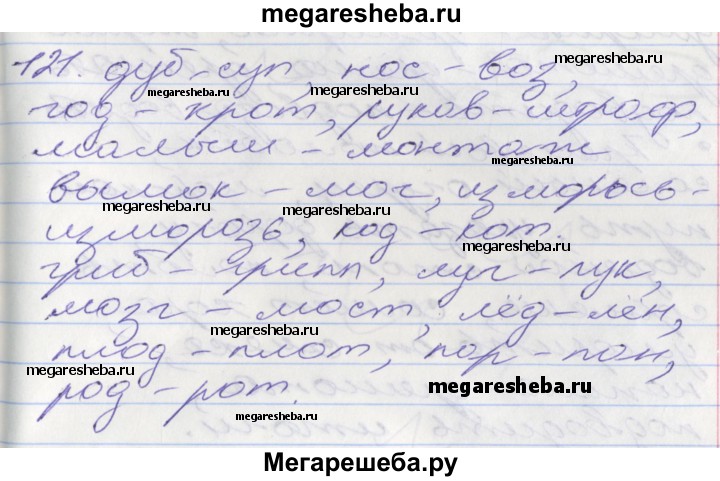 megaresheba.ru
121. дуб - суп, нос - воз,
год - крот, рукав - штраф,
малыш - монтаж
вымок - мог, изморось -
изморозь, код - кот.
гриб - грипп, луг - лук,
мозг - мост, лёд - лён,
плод - плот, пор - пон,
род - рот.
megaresheba.ru
megaresheba.ru
megaresheba.ru
megaresheba.ru
megaresheba.ru
megaresheba.ru
megaresheba.ru
megaresheba.ru
megaresheba.ru
megaresheba.ru
Мегарешеба.ру